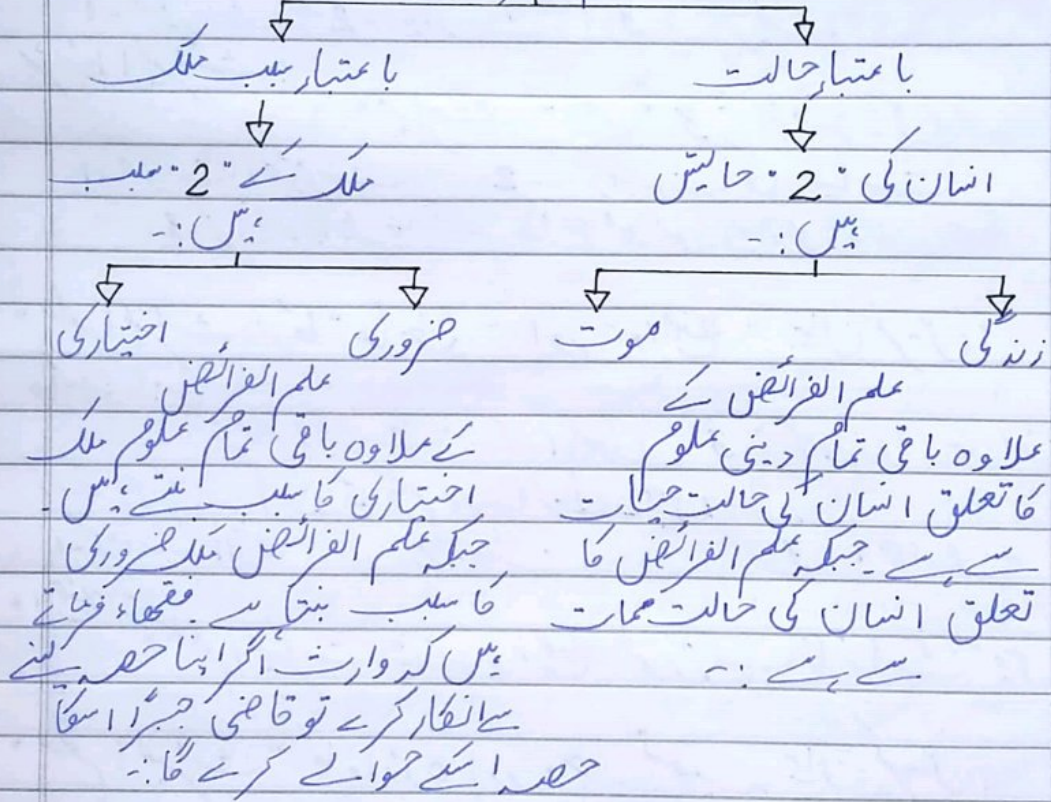 با عتبارِ حالت
انسان کی "2" حالیتں
ہیں :-
زندگی
موت
علم الفرائض کے
علاوہ باقی تمام دینی علوم
کا تعلق انسان کی حالت حیات
سے ہے ۔ جبکہ علم الفرائض کا
تعلق انسان کی حالت ممات
سے ہے :-
با عتبارِ سبب ملک
ملک کے "2" سبب
ہیں :-
ضروری
اختیاری
علم الفرائض
کے علاوہ باقی تمام علوم ملک
اختیاری کا سبب بنتے ہیں ۔
جبکہ علم الفرائض ملک ضروری
کا سبب بنتا ہے ۔ فقھاء فرماتے
ہیں کہ وارث اگر اپنا حصہ لینے
سے انکار کرے تو قاضی جبرًا اسکا
حصہ اسکے حوالے کرے گا :-